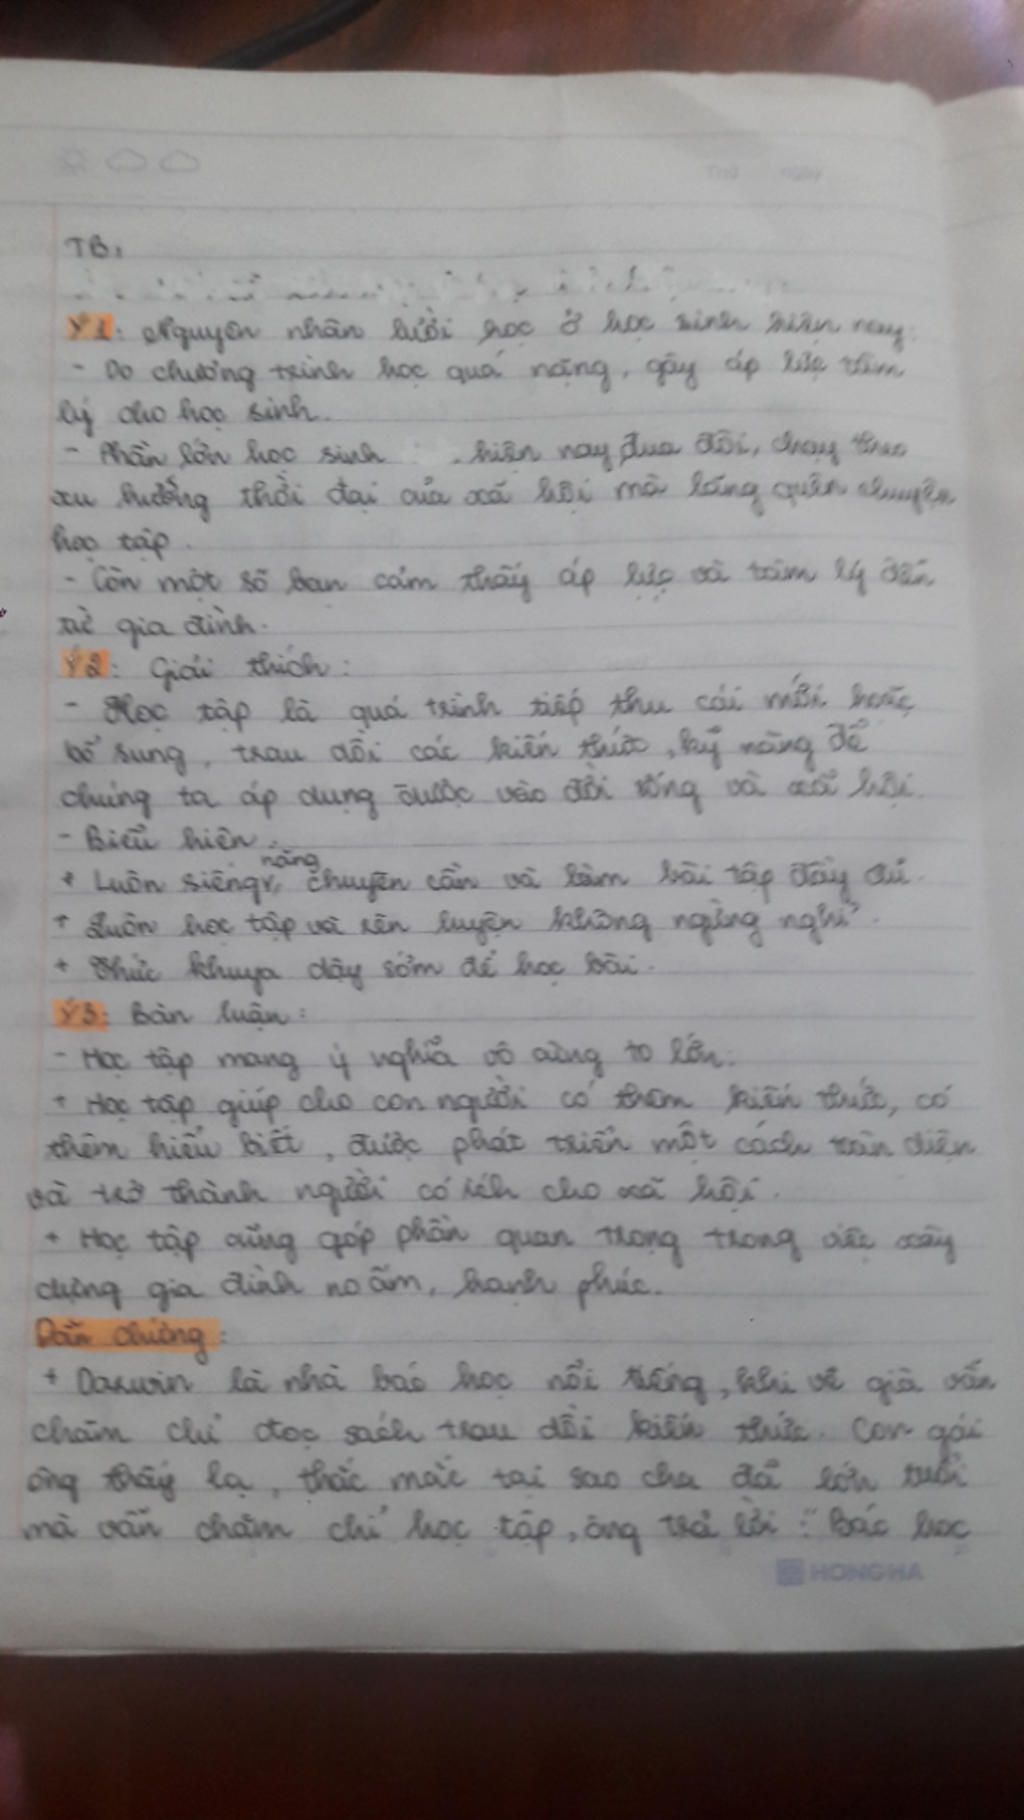 Thứ ngày
TB:
Ý1: Nguyên nhân lười học ở học sinh hiện nay:
- Do chương trình học quá nặng, gây áp lực tâm
lý cho học sinh.
- Phần lớn học sinh hiện nay đua đòi, chạy theo
xu hướng thời đại của xã hội mà lãng quên chuyện
học tập.
- Còn một số bạn cảm thấy áp lực và tâm lý đến
từ gia đình.
Ý2: Giải thích:
- Học tập là quá trình tiếp thu cái mới hoặc
bổ sung, trau dồi các kiến thức, kỹ năng để
chúng ta áp dụng được vào đời sống và xã hội.
- Biểu hiện:
+ Luôn siêng năng, chuyên cần và làm bài tập đầy đủ.
+ Luôn học tập và rèn luyện không ngừng nghỉ.
+ Thức khuya dậy sớm để học bài.
Ý3: Bàn luận:
- Học tập mang ý nghĩa vô cùng to lớn:
+ Học tập giúp cho con người có thêm kiến thức, có
thêm hiểu biết, được phát triển một cách toàn diện
và trở thành người có ích cho xã hội.
+ Học tập cũng góp phần quan trọng trong việc xây
dựng gia đình no ấm, hạnh phúc.
Dẫn chứng:
+ Darwin là nhà bác học nổi tiếng, khi về già vẫn
chăm chỉ đọc sách trau dồi kiến thức. Con gái
ông thấy lạ, thắc mắc tại sao cha đã lớn tuổi
mà vẫn chăm chỉ học tập, ông trả lời: "Bác học
HONG HA